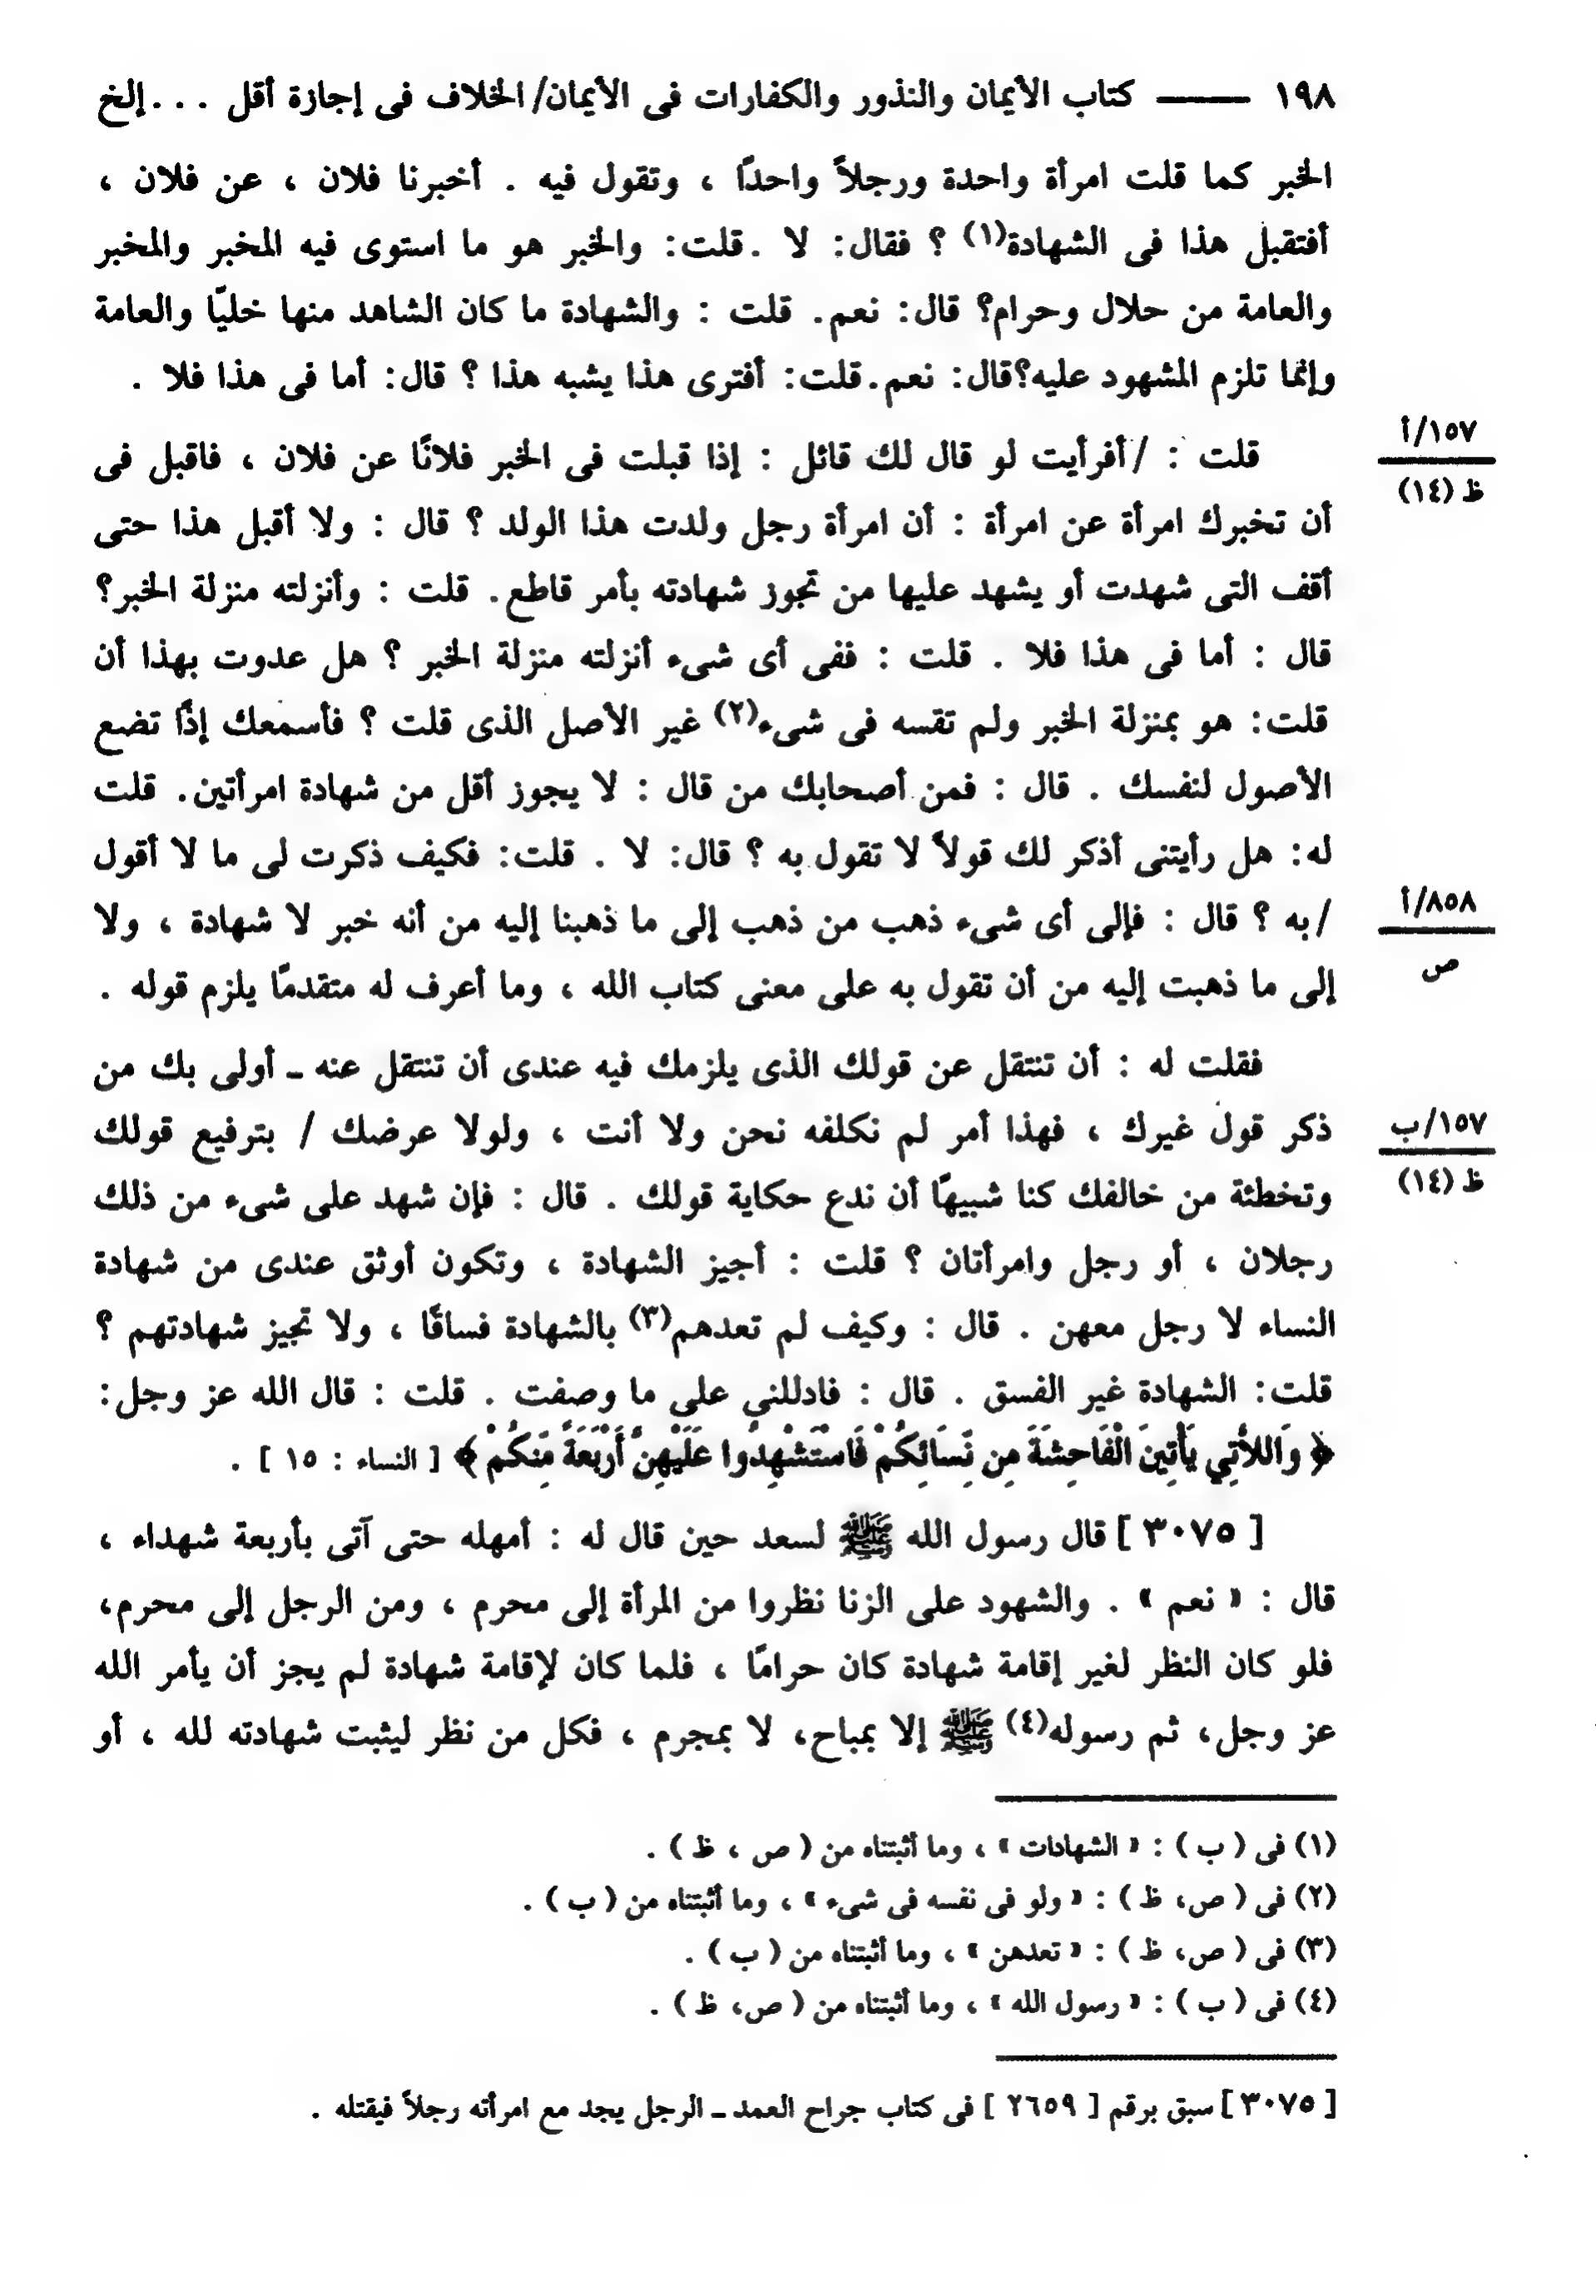 ١٩٨ ——— كتاب الأيمان والنذور والكفارات فى الأيمان/ الخلاف فى إجازة أقل ... إلخ
الخبر كما قلت امرأة واحدة ورجلاً واحدًا ، وتقول فيه . أخبرنا فلان ، عن فلان ،
أفتقبل هذا فى الشهادة(١) ؟ فقال: لا .قلت: والخبر هو ما استوى فيه المخبر والمخبر
والعامة من حلال وحرام؟ قال: نعم. قلت : والشهادة ما كان الشاهد منها خليّا والعامة
وإنما تلزم المشهود عليه؟قال: نعم.قلت: أفترى هذا يشبه هذا ؟ قال: أما فى هذا فلا .
قلت : /أفرأيت لو قال لك قائل : إذا قبلت فى الخبر فلانًا عن فلان ، فاقبل فى
١٥٧/أ
ظ (١٤)
أن تخبرك امرأة عن امرأة : أن امرأة رجل ولدت هذا الولد ؟ قال : ولا أقبل هذا حتى
أقف التى شهدت أو يشهد عليها من تجوز شهادته بأمر قاطع. قلت : وأنزلته منزلة الخبر؟
قال : أما فى هذا فلا . قلت : ففى أى شىء أنزلته منزلة الخبر ؟ هل عدوت بهذا أن
قلت: هو بمنزلة الخبر ولم تقسه فى شىء(٢) غير الأصل الذى قلت ؟ فأسمعك إذًا تضع
الأصول لنفسك . قال : فمن أصحابك من قال : لا يجوز أقل من شهادة امرأتين. قلت
له: هل رأيتنى أذكر لك قولاً لا تقول به ؟ قال: لا . قلت: فكيف ذكرت لى ما لا أقول
/به ؟ قال : فإلى أى شىء ذهب من ذهب إلى ما ذهبنا إليه من أنه خبر لا شهادة ، ولا
٨٥٨/أ
ص
إلى ما ذهبت إليه من أن تقول به على معنى كتاب الله ، وما أعرف له متقدمًا يلزم قوله .
فقلت له : أن تنتقل عن قولك الذى يلزمك فيه عندى أن تنتقل عنه ـ أولى بك من
ذكر قول غيرك ، فهذا أمر لم نكلفه نحن ولا أنت ، ولولا عرضك / بترفيع قولك
١٥٧/ب
ظ (١٤)
وتخطئة من خالفك كنا شبيهًا أن ندع حكاية قولك . قال : فإن شهد على شىء من ذلك
رجلان ، أو رجل وامرأتان ؟ قلت : أجيز الشهادة ، وتكون أوثق عندى من شهادة
النساء لا رجل معهن . قال : وكيف لم تعدهم(٣) بالشهادة فساقًا ، ولا تجيز شهادتهم ؟
قلت: الشهادة غير الفسق . قال : فادللني على ما وصفت . قلت : قال الله عز وجل:
﴿ وَاللاَّتِي يَأْتِينَ الْفَاحِشَةَ مِن نِّسَائِكُمْ فَاسْتَشْهِدُوا عَلَيْهِنَّ أَرْبَعَةً مِّنكُمْ ﴾ [ النساء : ١٥ ] .
[ ٣٠٧٥ ] قال رسول الله ﷺ لسعد حين قال له : أمهله حتى آتى بأربعة شهداء ،
قال : « نعم » . والشهود على الزنا نظروا من المرأة إلى محرم ، ومن الرجل إلى محرم،
فلو كان النظر لغير إقامة شهادة كان حرامًا ، فلما كان لإقامة شهادة لم يجز أن يأمر الله
عز وجل، ثم رسوله(٤) ﷺ إلا بمباح، لا بمجرم ، فكل من نظر ليثبت شهادته لله ، أو
(١) فى ( ب ) : « الشهادات » ، وما أثبتناه من ( ص ، ظ ) .
(٢) فى ( ص، ظ ) : « ولو فى نفسه فى شىء » ، وما أثبتناه من ( ب ) .
(٣) فى ( ص، ظ ) : « تعدهن » ، وما أثبتناه من ( ب ) .
(٤) فى ( ب ) : « رسول الله » ، وما أثبتناه من ( ص، ظ ) .
[ ٣٠٧٥ ] سبق برقم [ ٢٦٥٩ ] فى كتاب جراح العمد ـ الرجل يجد مع امرأته رجلاً فيقتله .